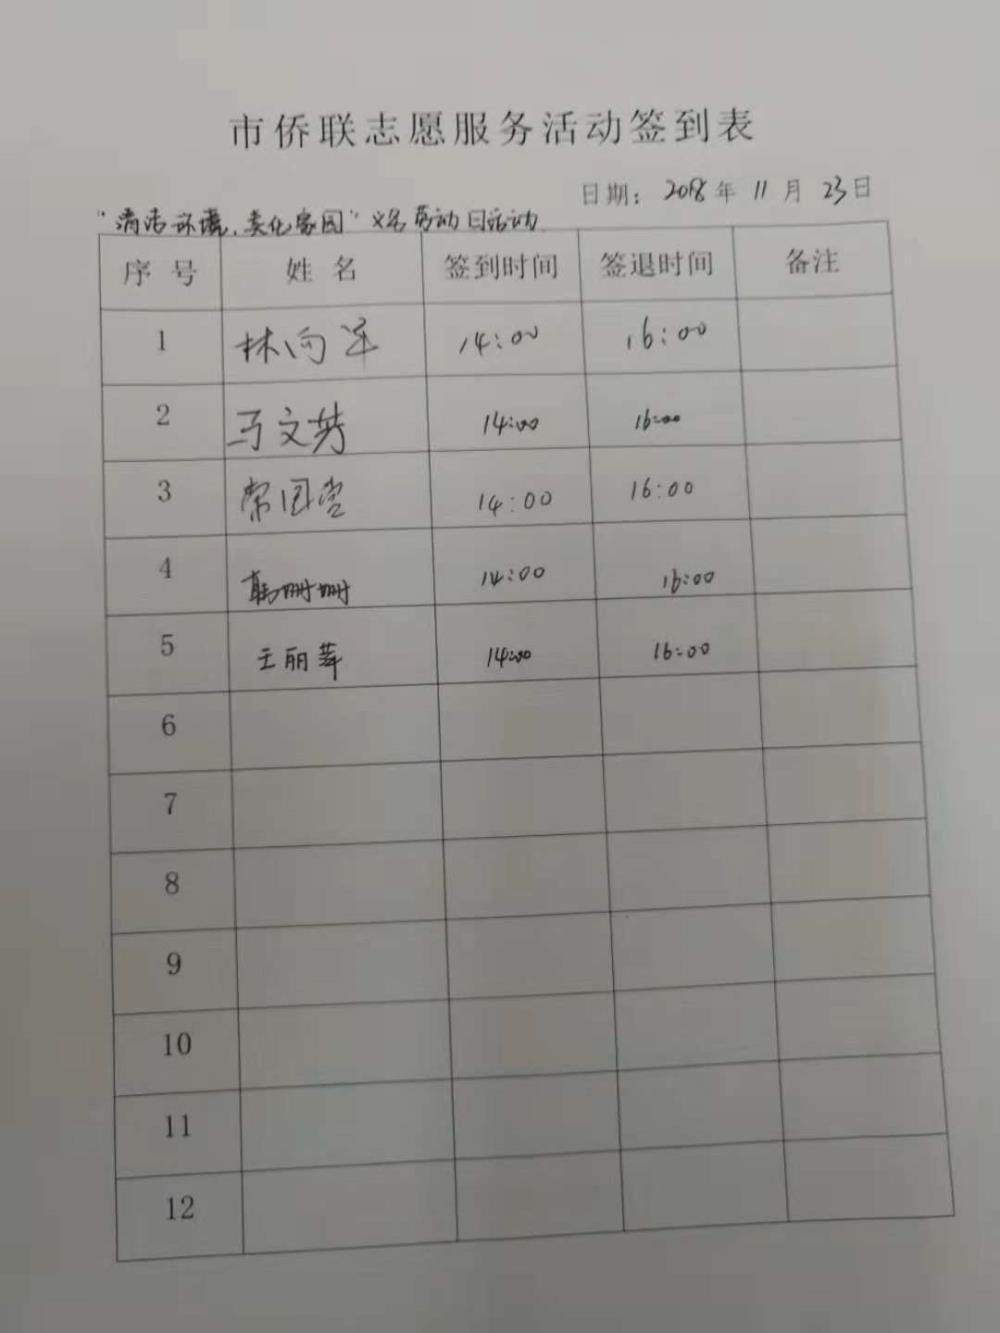 市侨联志愿服务活动签到表
日期：2018年 11月 23日
"清洁环境，美化家园"义务劳动日活动
序号 姓名 签到时间 签退时间 备注
1 林向军 14:00 16:00
2 马文芳 14:00 16:00
3 常国 14:00 16:00
4 韩珊珊 14:00 16:00
5 王丽萍 14:00 16:00
6
7
8
9
10
11
12